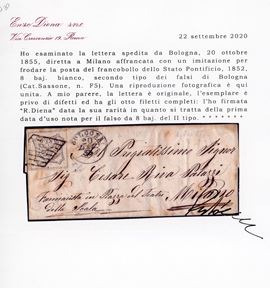 Enzo Diena sns
Via Crescenzio 19, Roma
22 settembre 2020
Ho esaminato la lettera spedita da Bologna, 20 ottobre
1855, diretta a Milano affrancata con un imitazione per
frodare la posta del francobollo dello Stato Pontificio, 1852,
8 baj. bianco, secondo tipo dei falsi di Bologna
(Cat.Sassone, n. F5). Una riproduzione fotografica è qui
unita. A mio parere, la lettera è originale, l'esemplare è
privo di difetti ed ha gli otto filetti completi: l'ho firmata
"R.Diena" data la sua rarità in quanto si tratta della prima
data d'uso nota per il falso da 8 baj. del II tipo.
Signor
Sig Cesare Riva Palazzi
Milano
della Scala